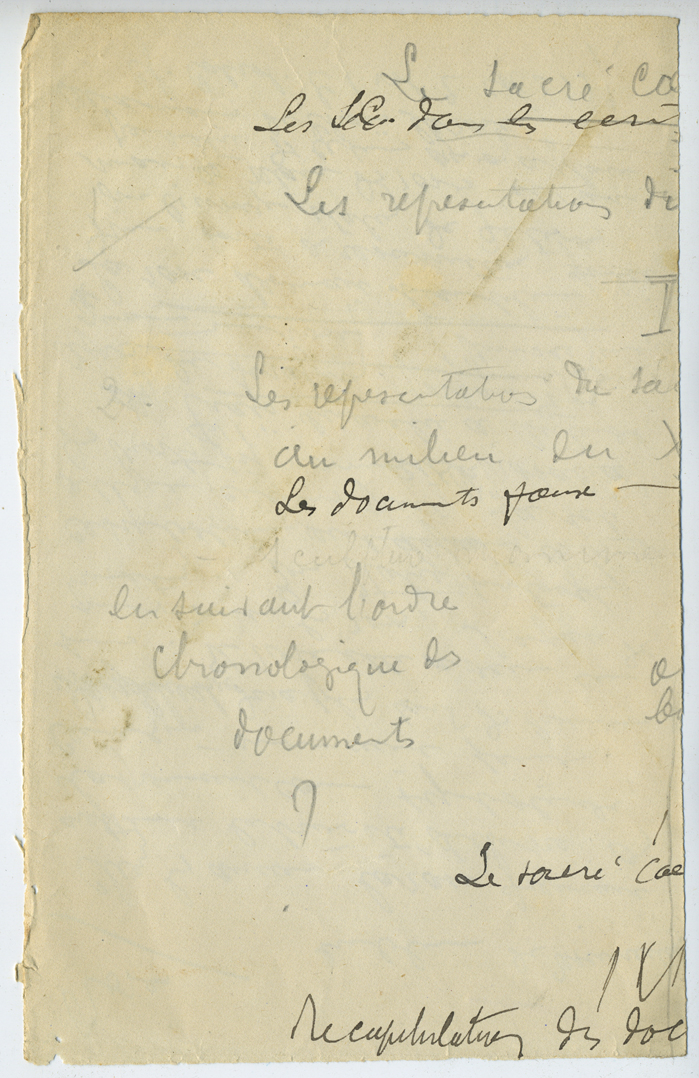 Le sacré co
Les dans les ecri
Les representations du
I
2.
Les representations du sa
au milieu du X
Les documents faux —
en suivant l'ordre
chronologique des
documents
?
Le sacré Coe
IV
Recapitulation des doc